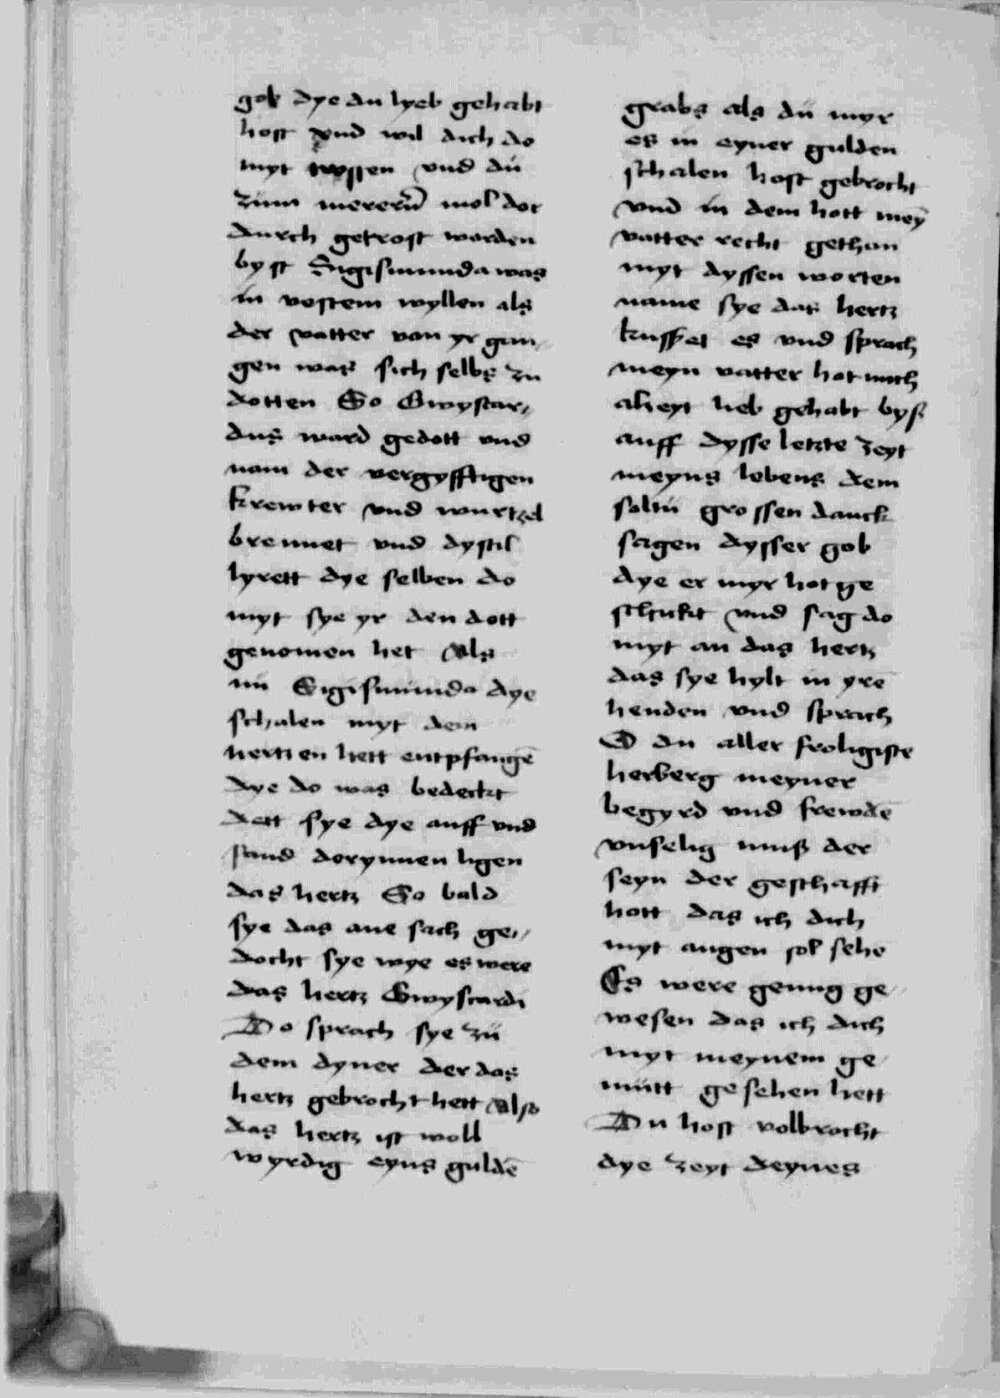 gob dye du lyeb gehabt
host vnd wil dich do
myt trossen vnd dü
zum mererñ mol dor
durch getrost worden
byst Sigismunda was
in vestem wyllen als
der vatter von yr gan,
gen was sich selbs zu
dotten So Gwyscar,
dus ward gedott vnd
nam der vergyfftigen
krewter vnd wurtzel
brennet vnd dystil
lyrett dye selben do
myt sye yr den dott
genomen het Als
nü Sigismunda dye
schalen myt dem
hertzen hett entpfangē
dye do was bedeckt
dett sye dye auff vnd
fand dorynnen ligen
das hertz So bald
sye das ane sach ge,,
docht sye wye es were
das hertz Gwyscardi
Do sprach sye zü
dem dyner der das
hertz gebrocht hett Also
das hertz ist woll
wyrdig eyns guldē
grabs als dü myr
es in eyner gulden
schalen host gebrocht
vnd in dem hott mey̅
vatter recht gethan
myt dyssen worten
name sye das hertz
kusset es vnd sprach
meyn vatter hot mich
alzeyt lieb gehabt byß
auff dysse letzte zeyt
meyns lebens dem
soltü grossen danck
sagen dysser gob
dye er myr hot ge
schickt vnd sag do
myt an das hertz
das sye hylt in yrē
henden vnd sprach
O du aller froligiste
herberg meyner
begyrd vnd frewdē
vnselig muß der
seyn der geschafft
hott das ich dich
myt augen sol sehē
Es were genug ge,
wesen das ich dich
myt meynem ge
mütt gesehen hett
Du host volbrocht
dye zeyt deynes